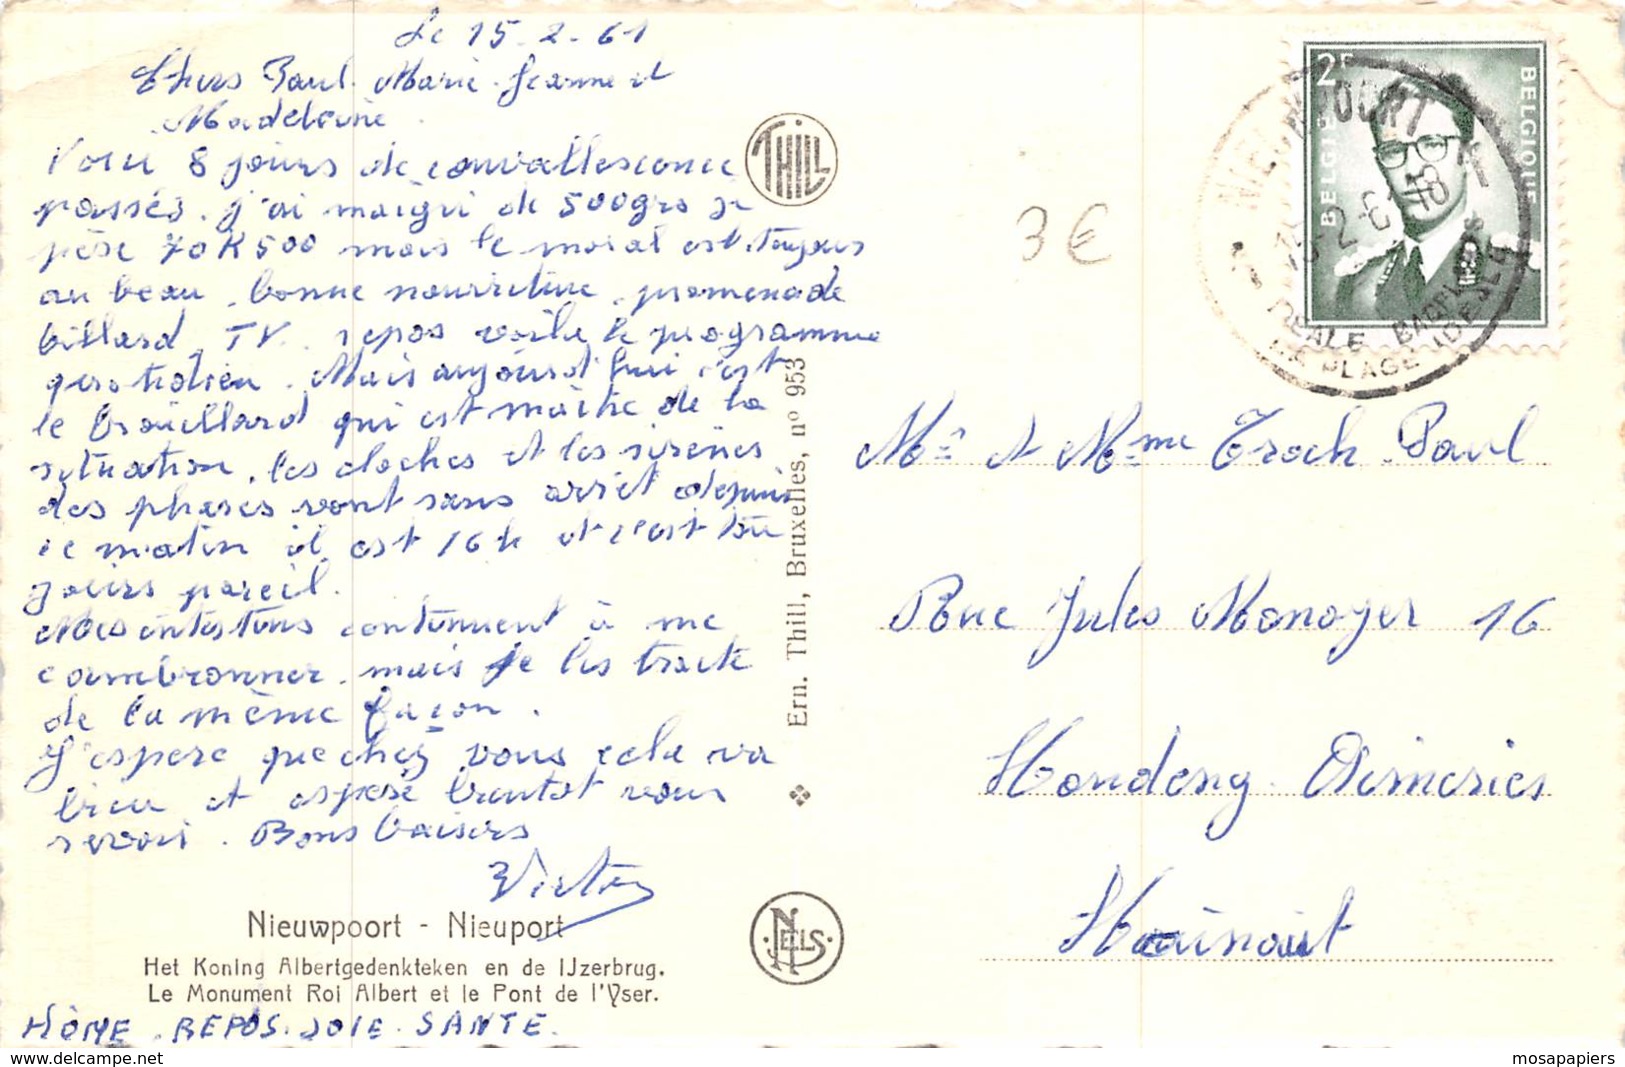 Le 15-2-61
Chers Paul. Marie-Jeanne et
Madeleine.
Voici 8 jours de convallesconce
passés. j'ai maigri de 500grs je
pèse 70K500 mais le moral est toujours
au beau, bonne nourriture, promenade
billard, TV. repos voilà le programme
quotidien. Mais aujourd'hui c'est
le brouillard qui est maître de la
situation, les cloches et les sirènes
des phares vont sans arrêt depuis
ce matin il est 16h et c'est tou
jours pareil.
Mes intestins continuent à me
cambronner. mais je les traite
de la même façon.
J'espere que chez vous cela va
bien et espere bientot vous
revoir. Bons baisers
Victor
Nieuwpoort - Nieuport
Het Koning Albertgedenkteken en de IJzerbrug.
Le Monument Roi Albert et le Pont de l'Yser.
HÔME. REPOS. JOIE. SANTE.
THILL
Ern. Thill, Bruxelles, n° 953
NELS
3€
2F
BELGIE
BELGIQUE
NIEUWPOORT
15-2-61
18
IDEALE BAD
PLAGE IDEALE
Mr et Mme Troch Paul
Rue Jules Monoyer 16
Houdeng. Aimeries
Hainaut
mosapapiers